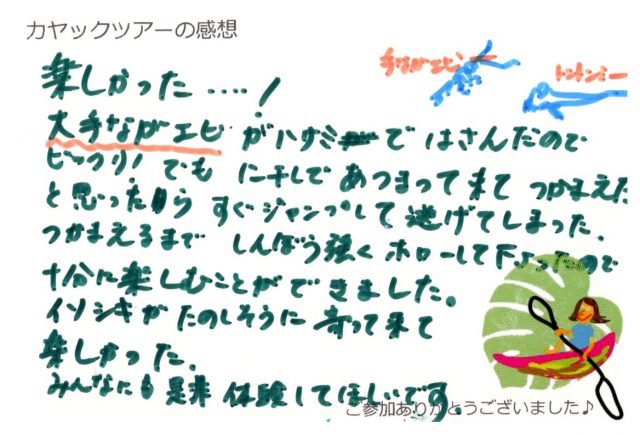 カヤックツアーの感想
手ながエビ
トントンミー
楽しかった……!
大手ながエビがハサミではさんだので
ビックリ! でも に干しで あつまって来て つかまえた
と思ったら すぐジャンプして 逃げてしまった.
つかまえるまで しんぼう強く ホローして下さったので
十分に楽しむことができました。
イソシギが たのしそうに 寄って来て
楽しかった.
みんなにも 是非 体験してほしいです.
ご参加ありがとうございました♪